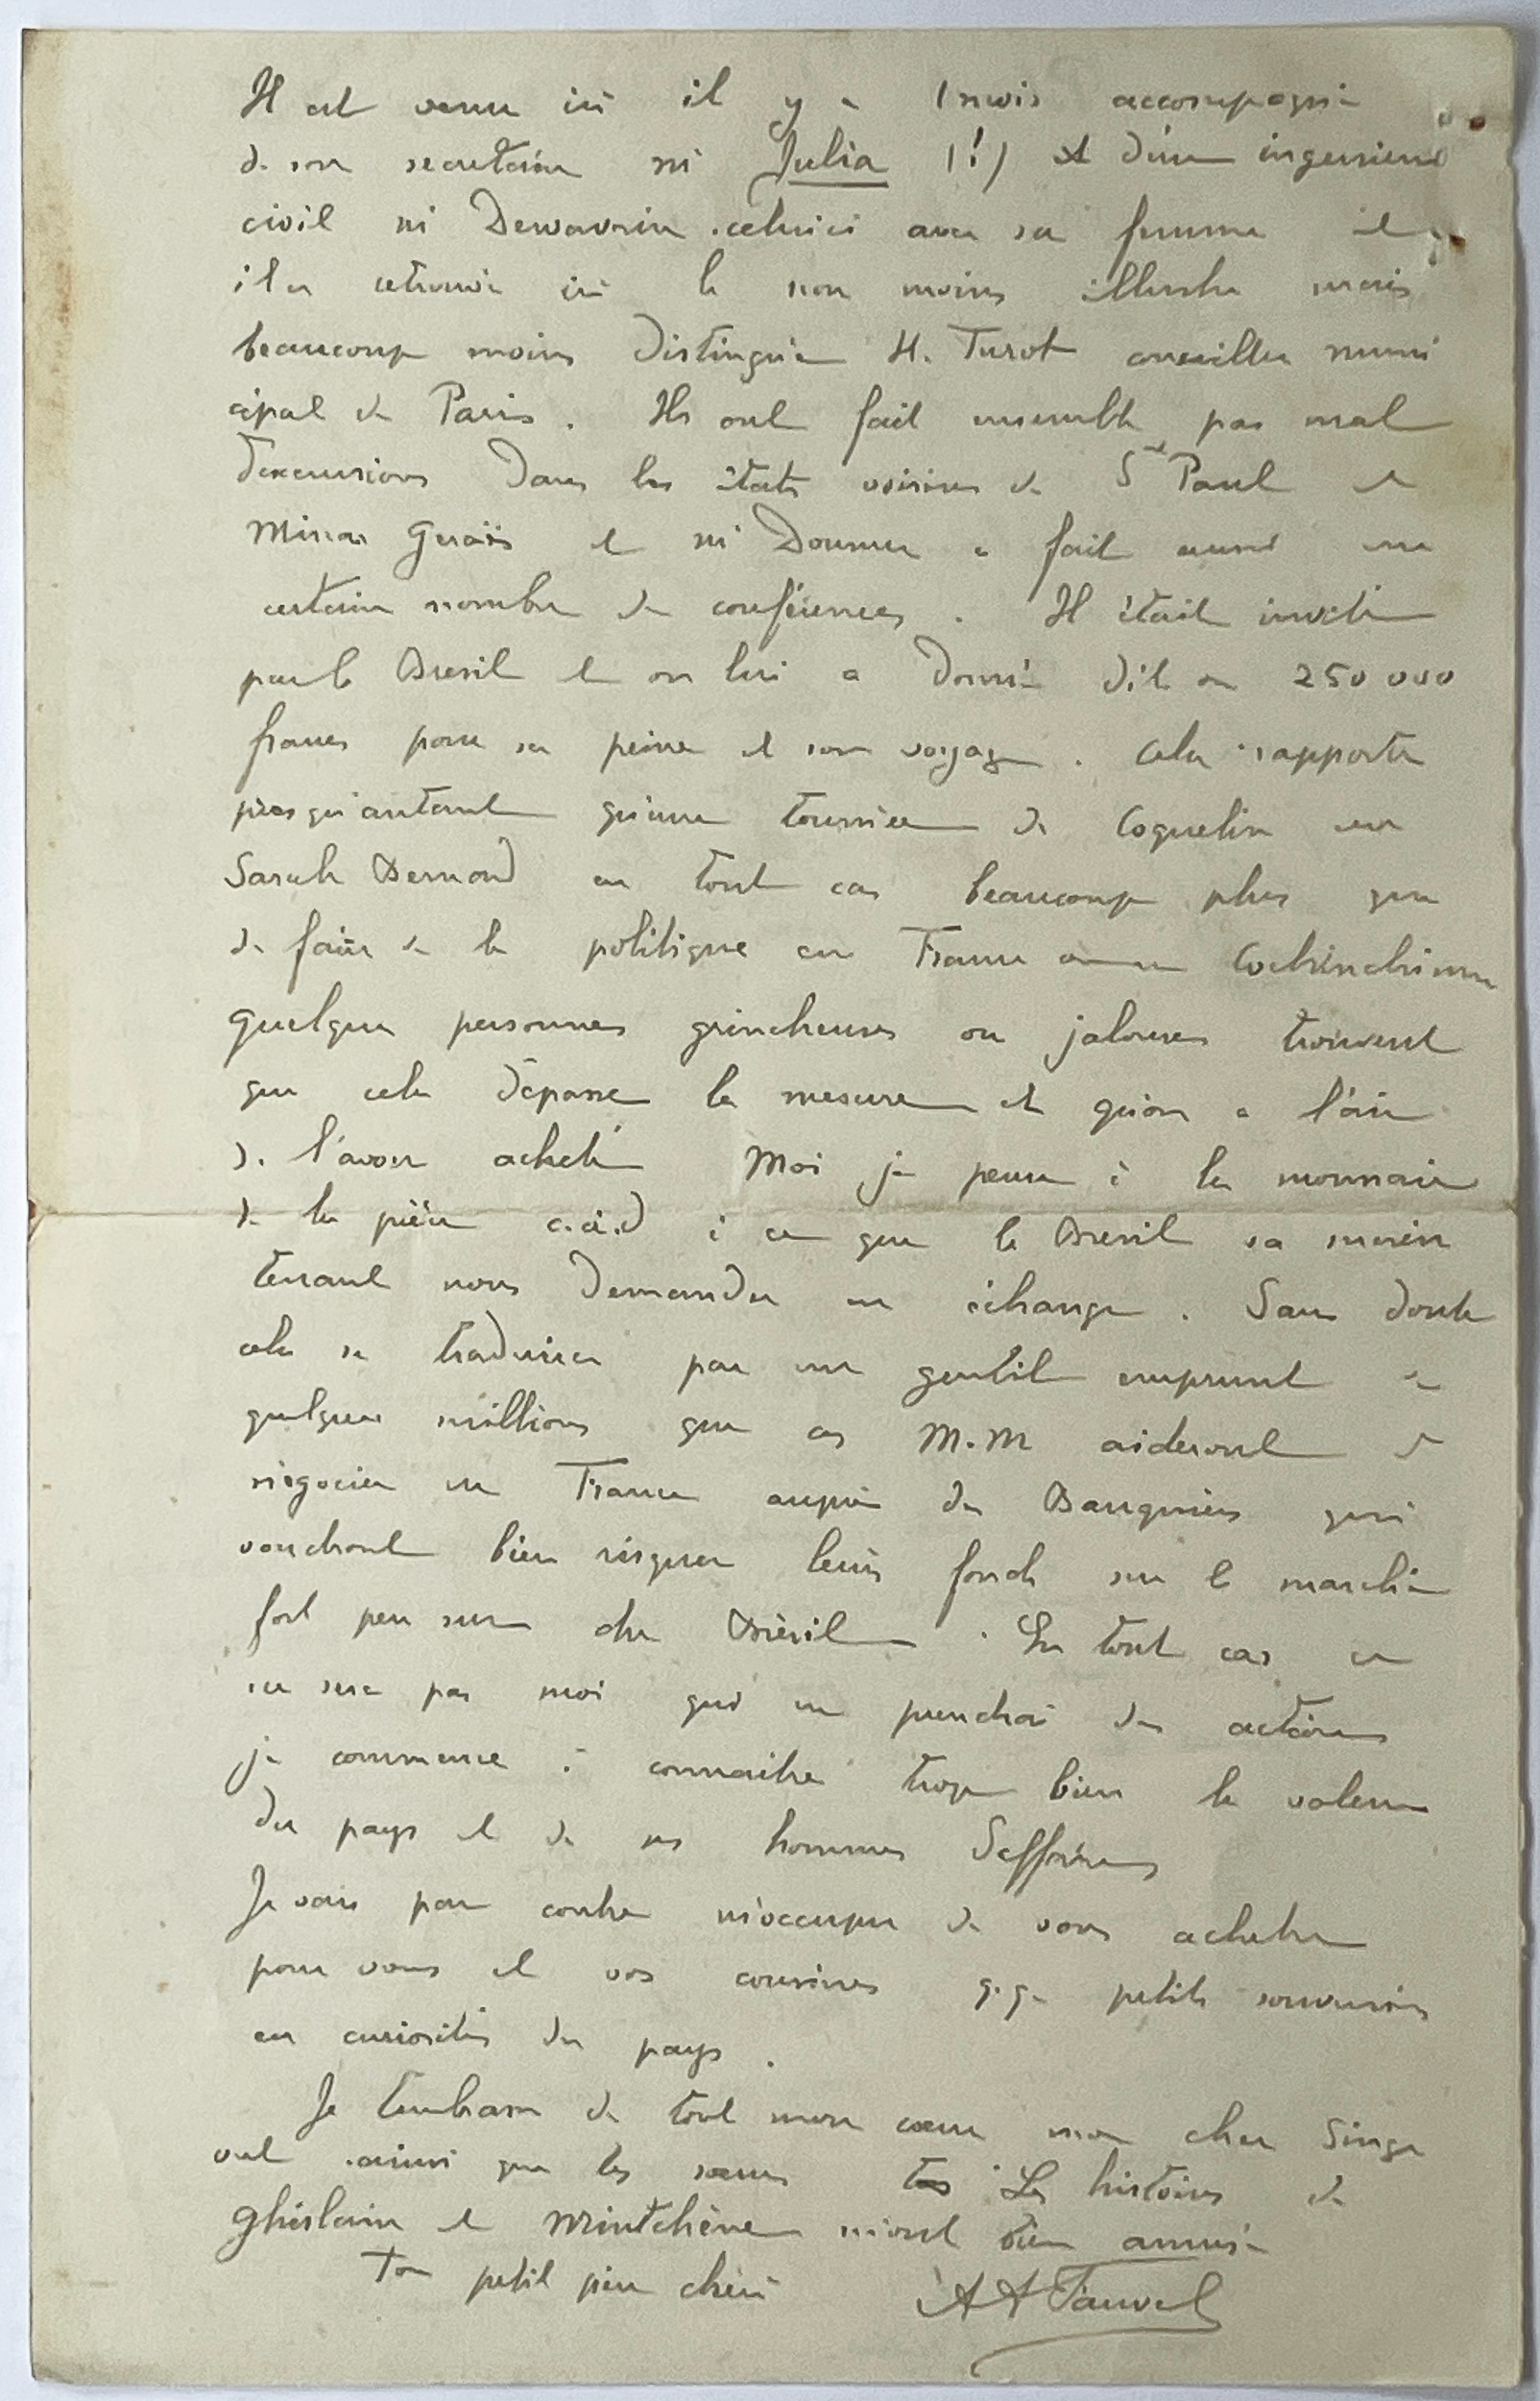 Il est venu ici il y a 1 mois accompagné
de son secretaire mr Julia (!) et d'un ingenieur
civil mr Dewavrin celui ci avec sa femme et
il a retrouvé ici le non moins illustre mais
beaucoup moins distingué H. Turot conseiller muni
cipal de Paris. Ils ont fait ensemble pas mal
d'excursions dans les états voisins de St Paul et
Minas Geraës et mr Doumer a fait aussi un
certain nombre de conférences. Il était invité
par le Bresil et on lui a donné dit on 250 000
francs pour sa peine et son voyage. Cela rapporte
presqu'autant qu'une tournée de Coquelin ou
Sarah Bernard en tout cas beaucoup plus que
de faire de la politique en France ou en Cochinchine
Quelques personnes grincheuses ou jalouses trouvent
que cela dépasse la mesure et qu'on a l'air
de l'avoir acheté Moi je pense à la monnaie
de la pièce c.à.d à ce que le Bresil va main
tenant nous demander en échange. Sans doute
cela se traduira par un gentil emprunt de
quelques millions que ces M.M aideront à
négocier en France auprès des Banquiers qui
voudront bien risquer leurs fonds sur le marché
fort peu sur du Brésil. En tout cas ce
ne sera pas moi qui en prendrai des actions
je commence à connaitre trop bien la valeur
du pays et de ses hommes d'affaires
Je vais par contre m'occuper de vous acheter
pour vous et vos cousines q.q. petits souvenirs
en curiosités du pays.
Je t'embrasse de tout mon cœur mon cher Singe
vert ainsi que tes sœurs tes Les histoires de
Ghislain et Mintchène m'ont bien amusé
Ton petit père chéri AA Fauvel